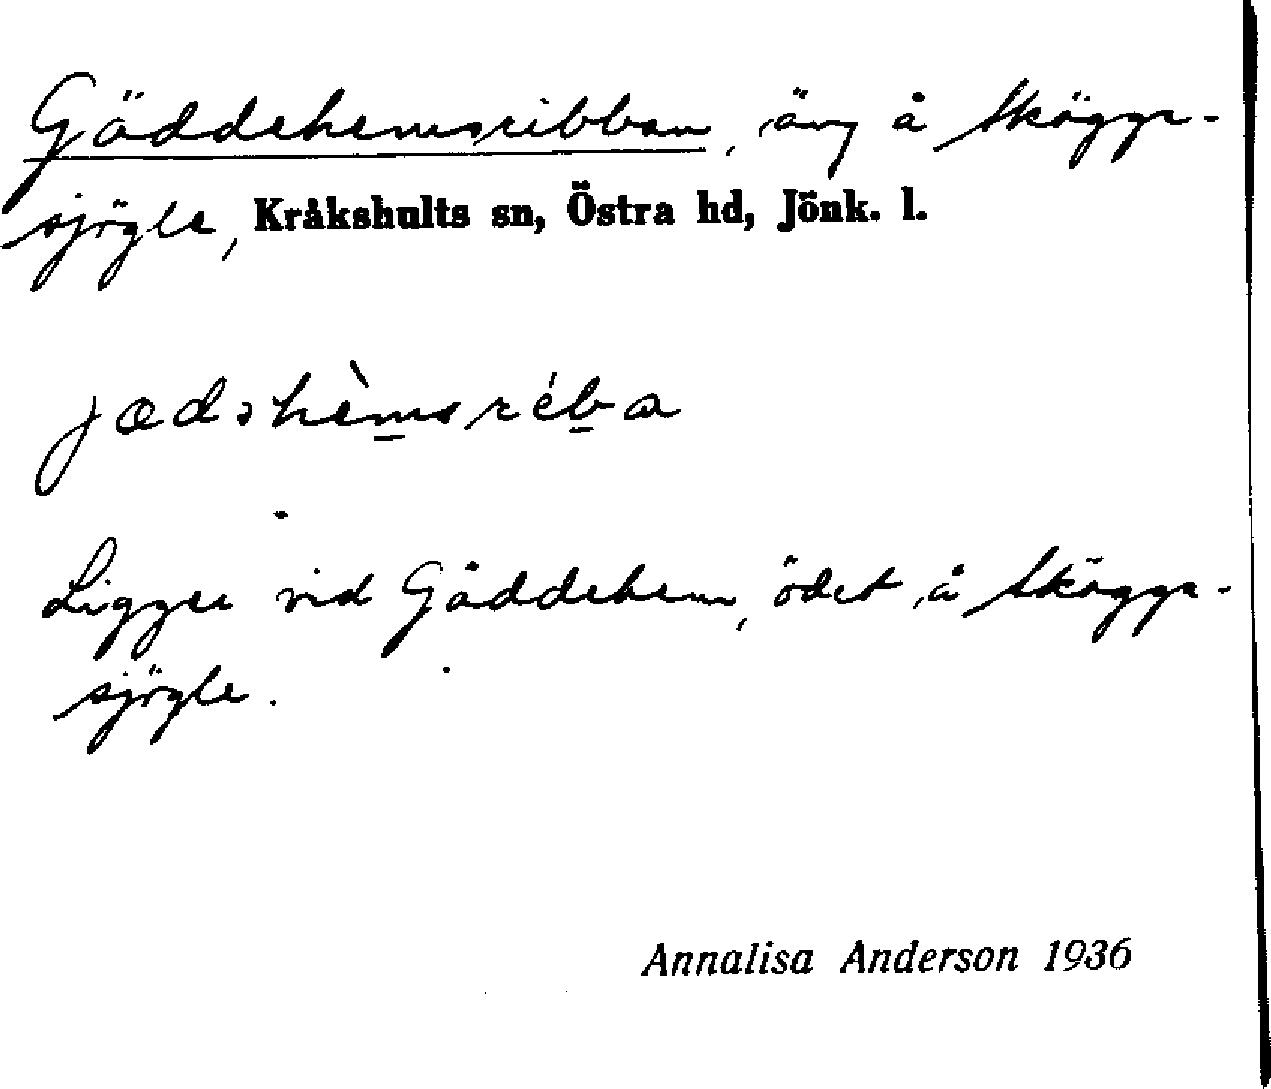 Gäddehemsribban, äng å Sköggs-
sjögle, Kråkshults sn, Östra hd, Jönk. l.
jædəhèmsréba
Ligger vid Gäddehem, ödet å Sköggs-
sjögle.
Annalisa Anderson 1936